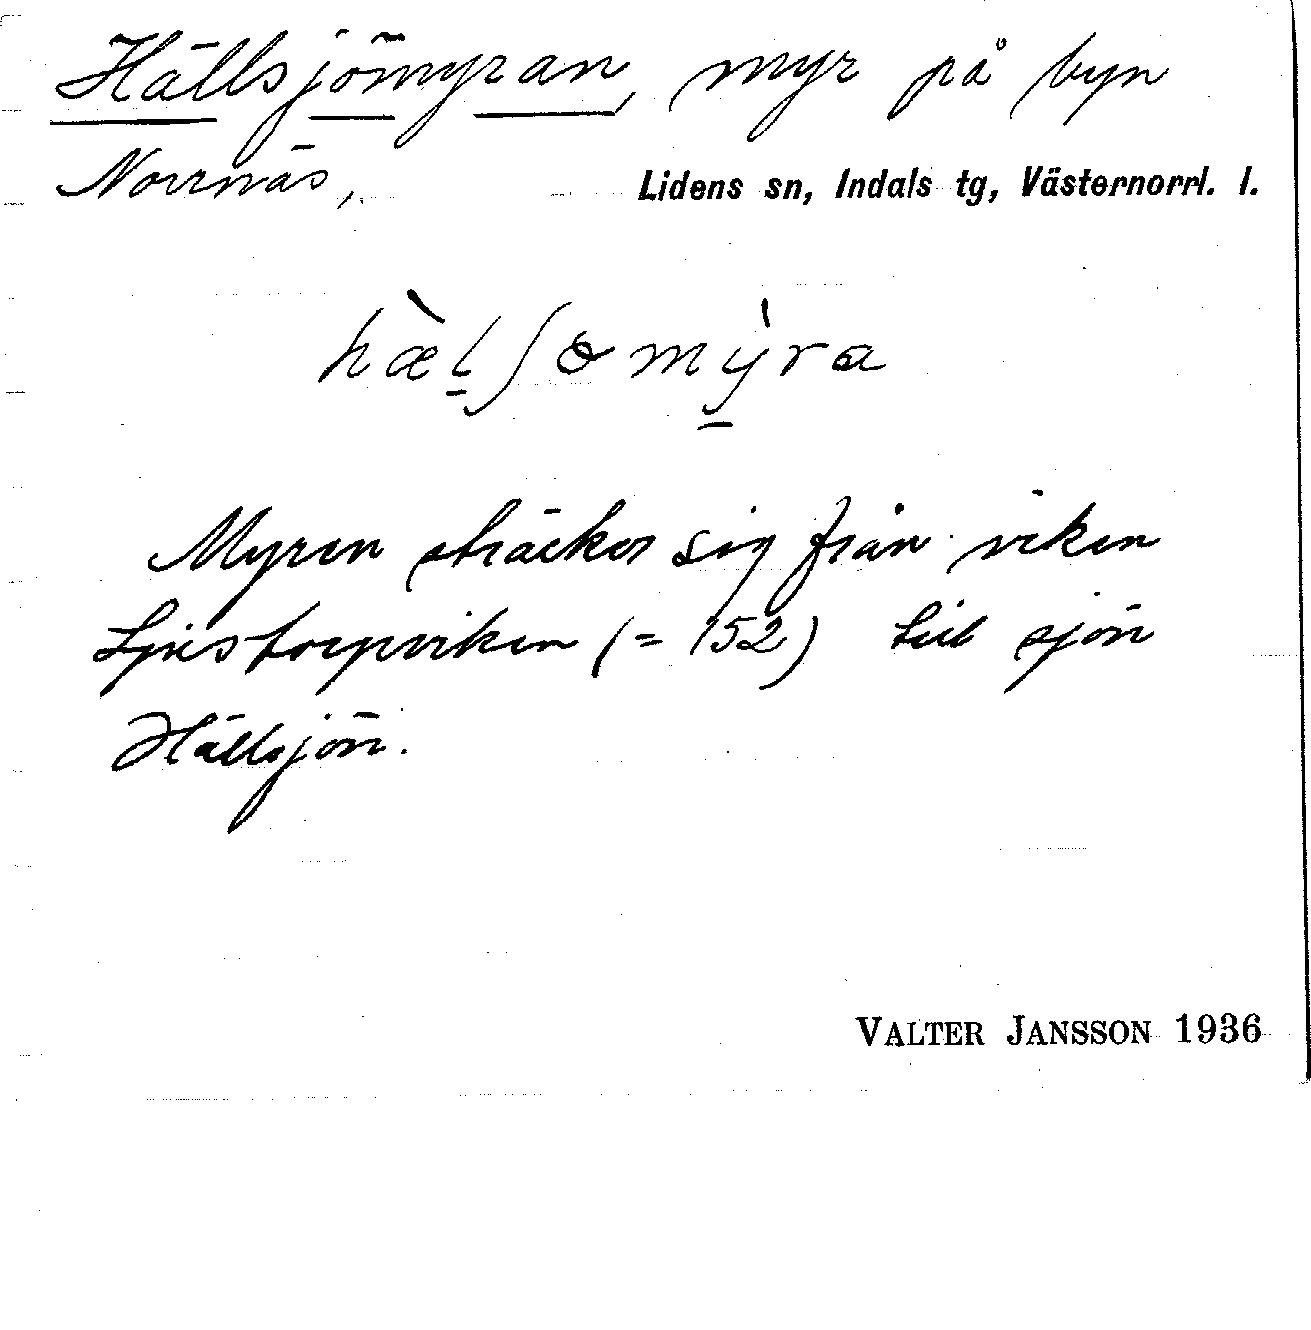 Hällsjömyran, myr på byn
Norrnäs, Lidens sn, Indals tg, Västernorrl. l.
hæ̀lʃomỳra
Myren sträcker sig från viken
Ljustorpviken (= 152) till sjön
Hällsjön.
VALTER JANSSON 1936